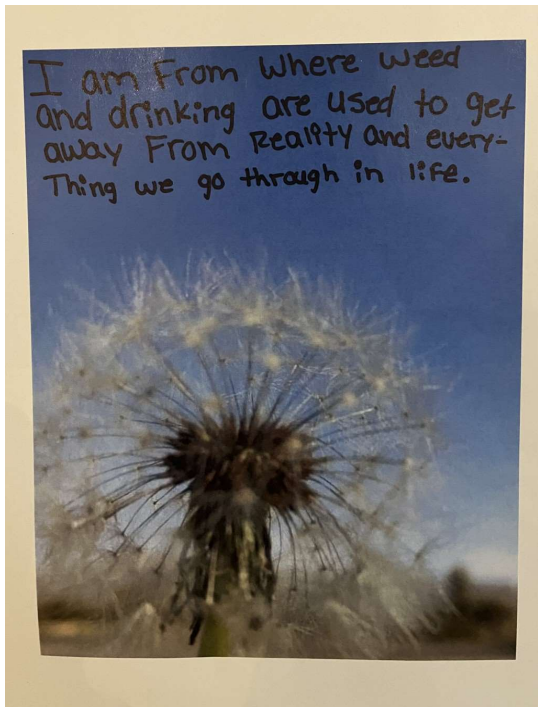 I am From Where weed
and drinking are used to get
away From Reality and every-
Thing we go through in life.